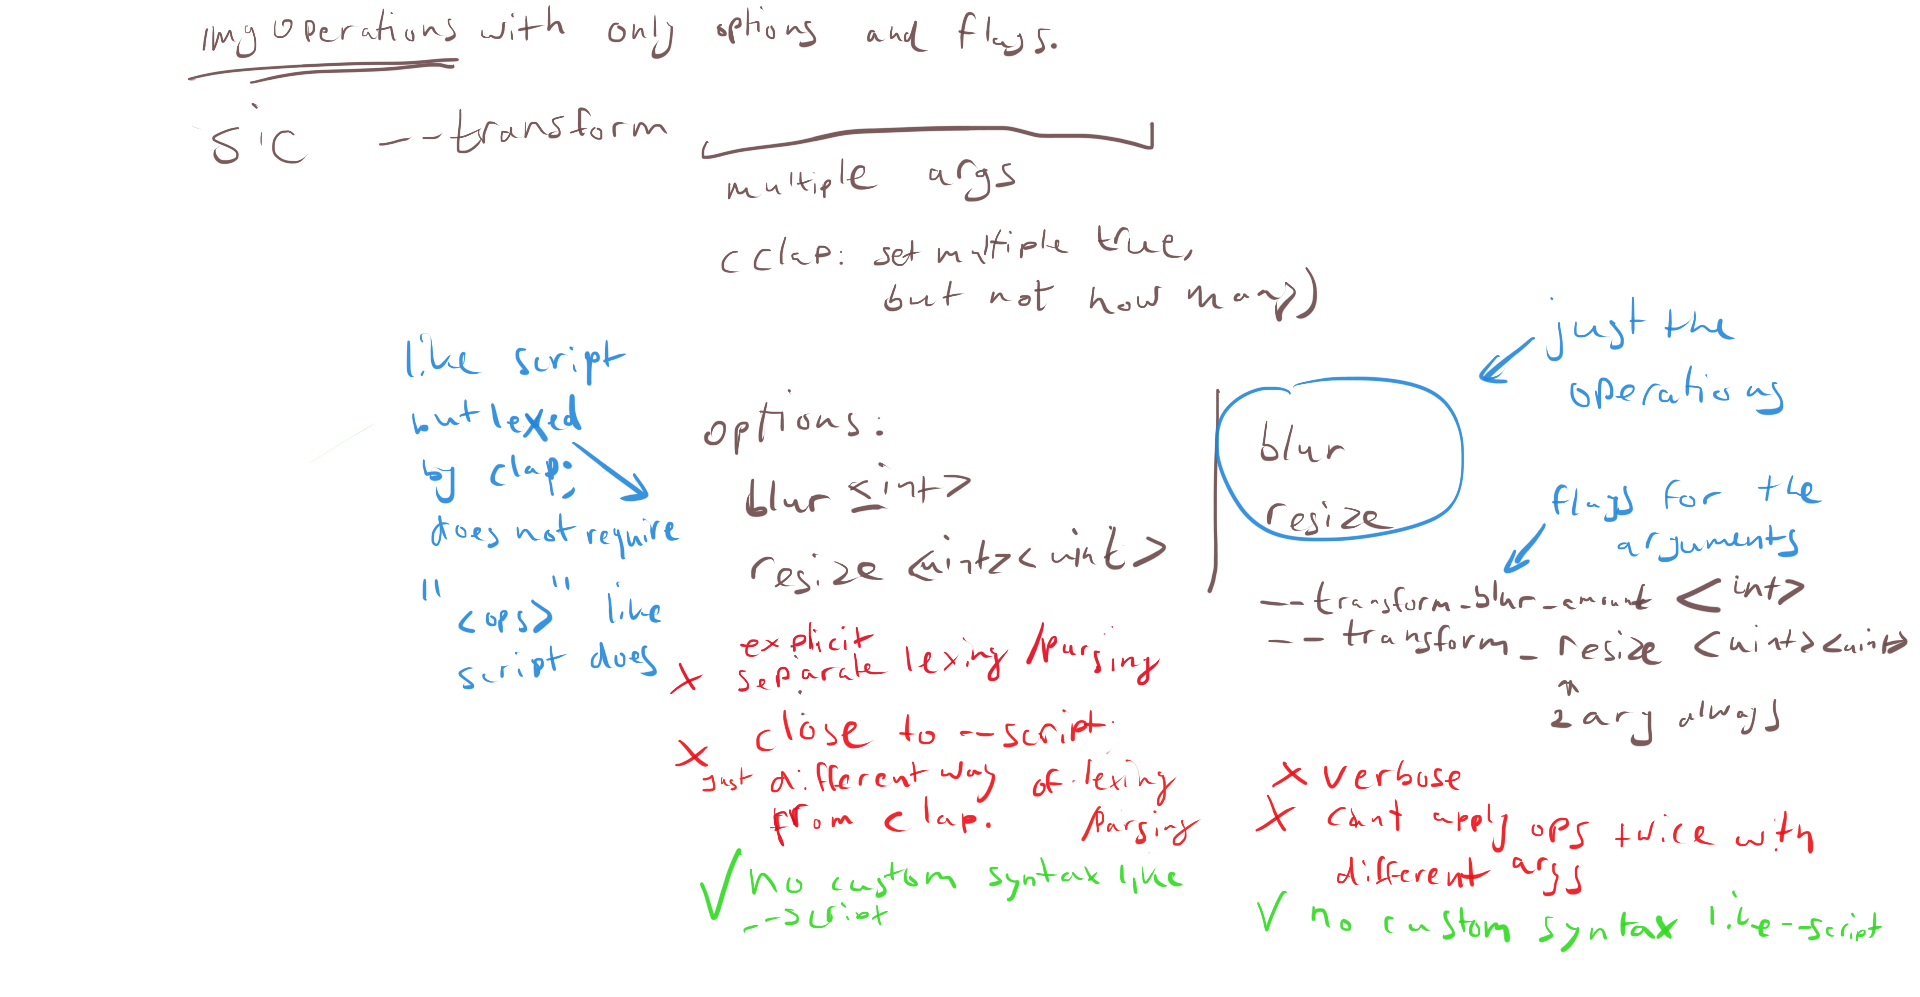 img operations with only options and flags.
sic --transform
multiple args
(clap: set multiple true,
but not how many)
like script
but lexed
by clap;
does not require
"<ops>" like
script does
options:
blur <int>
resize <uint><uint>
explicit
x separate lexing/parsing
x close to --script.
just different way of lexing
from clap. /parsing
✓ no custom syntax like
--script
just the
operations
blur
resize
flags for the
arguments
--transform_blur_amount <int>
--transform_resize <uint><uint>
2 arg always
x verbose
x cant apply ops twice with
different args
✓ no custom syntax like --script